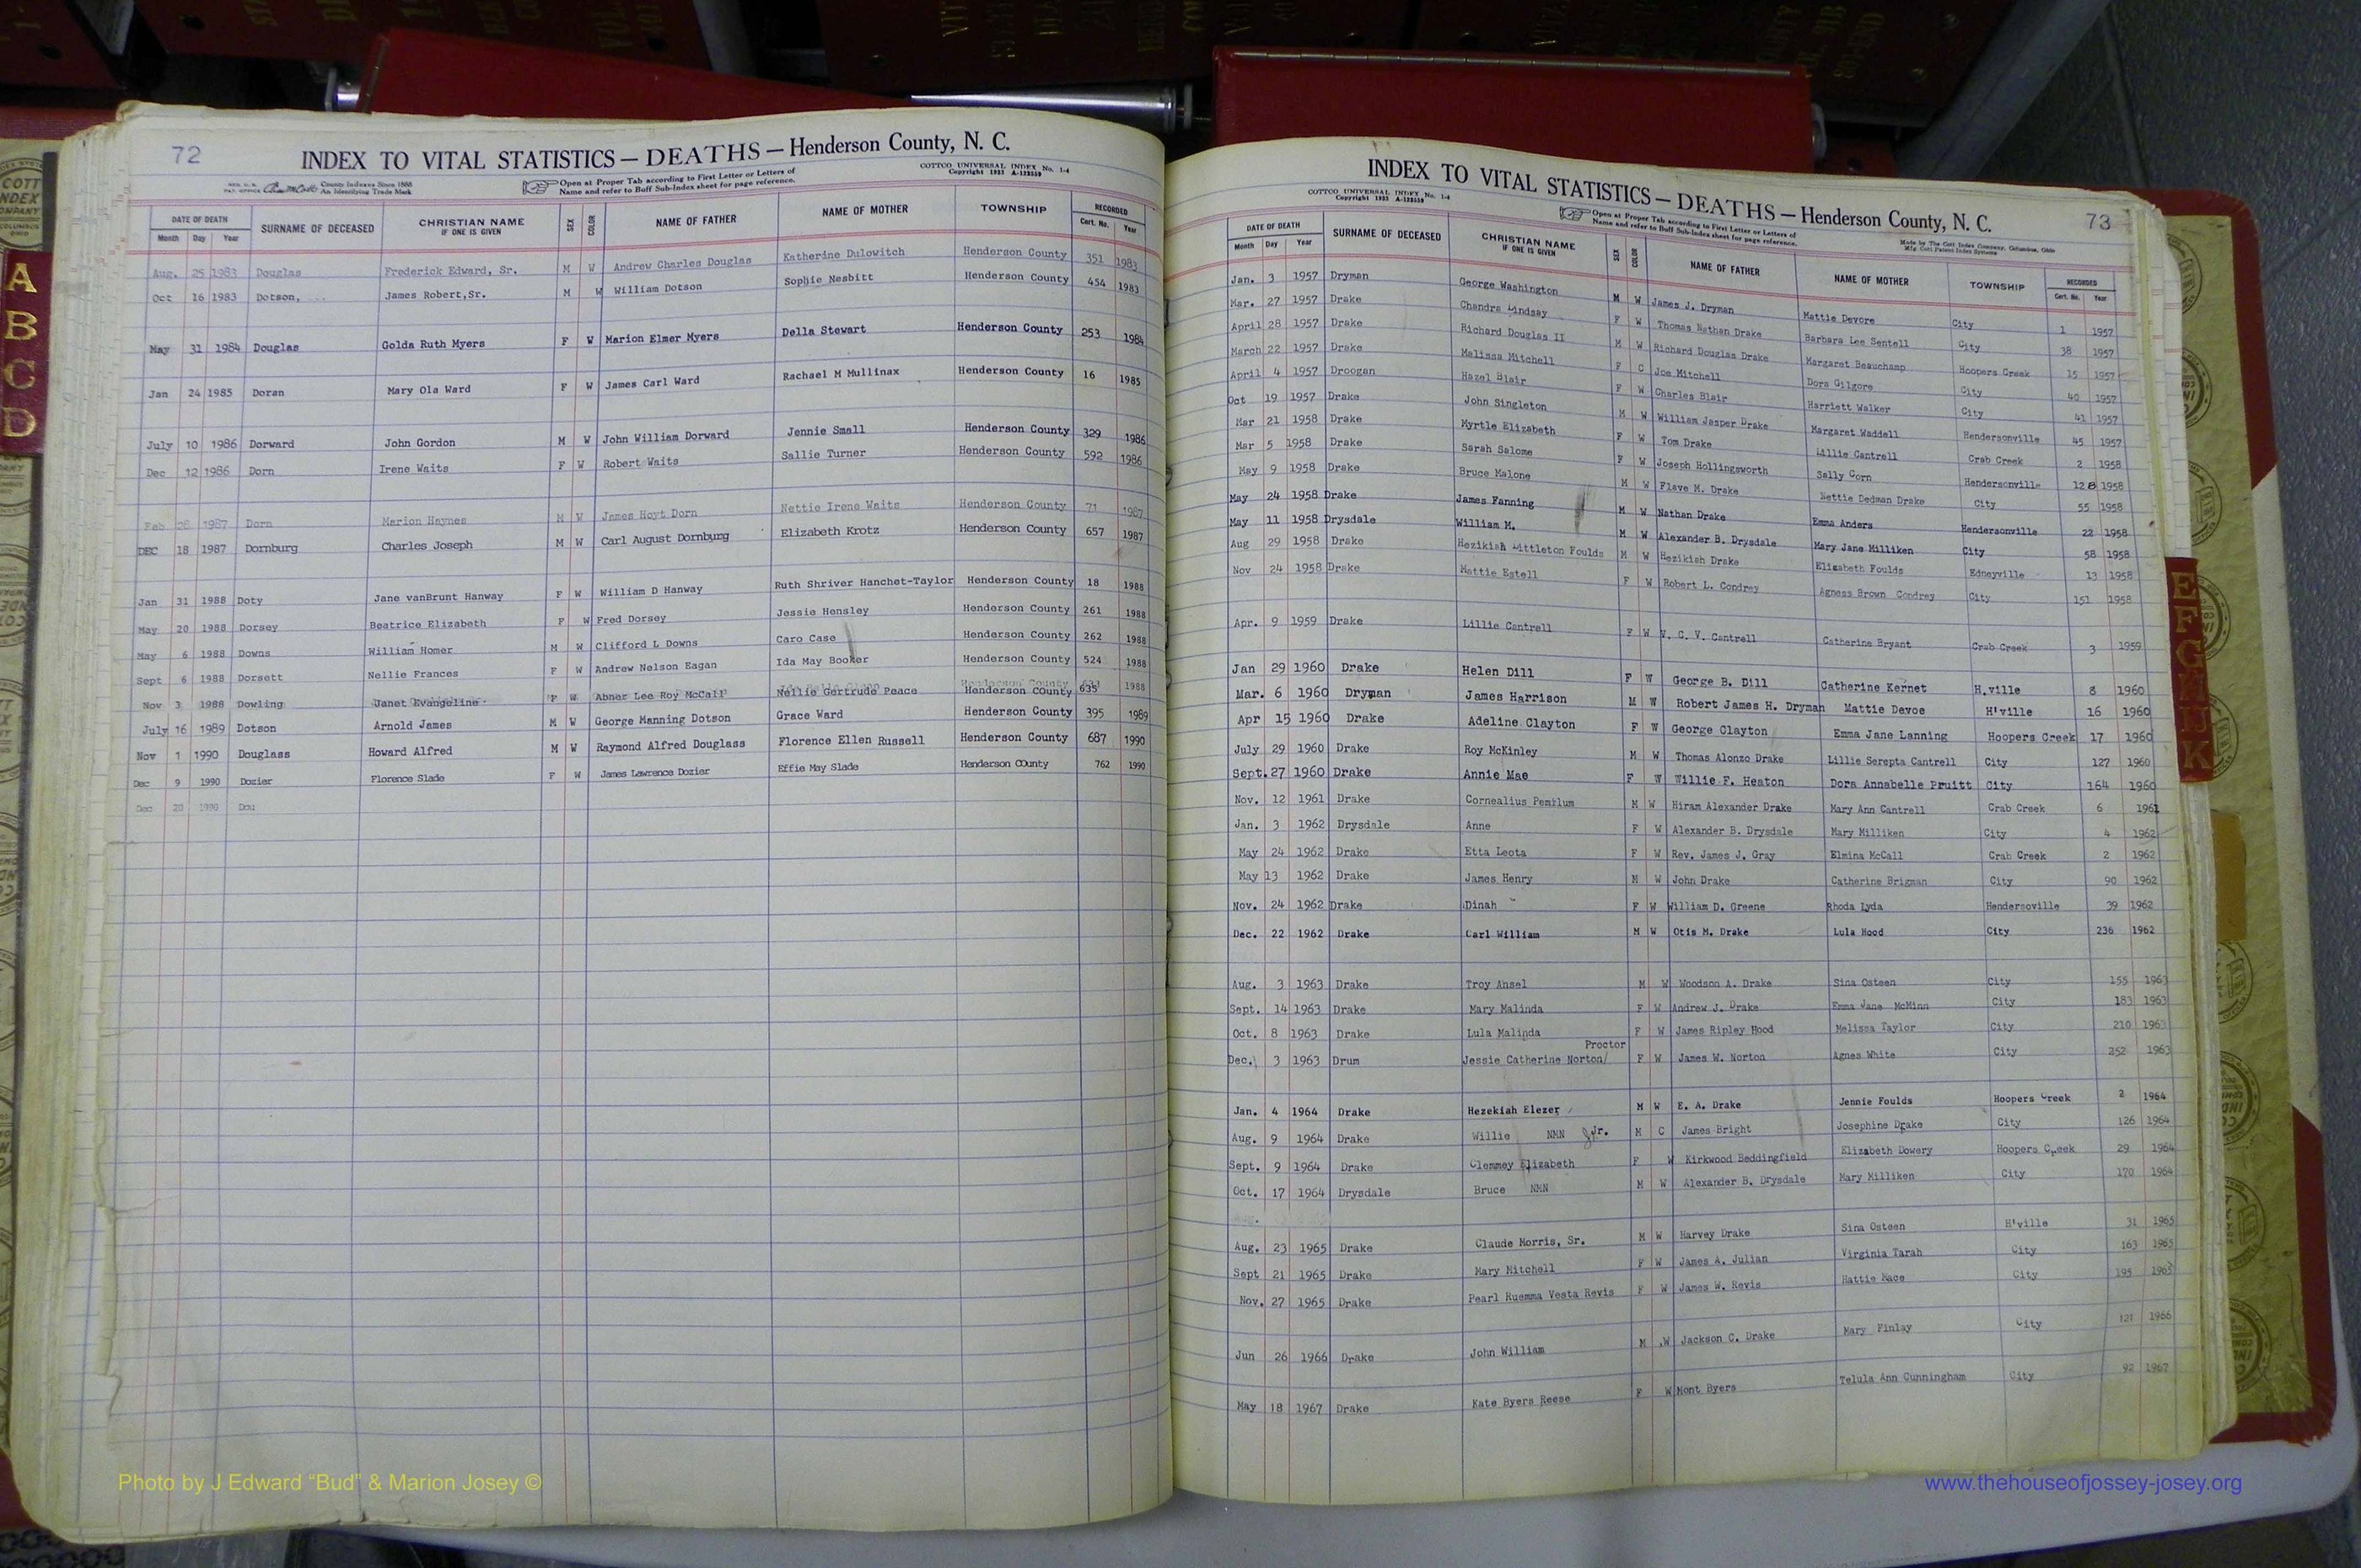 72
INDEX TO VITAL STATISTICS — DEATHS — Henderson County, N. C.
COTTCO UNIVERSAL INDEX No. 1-4
Copyright 1933 A-122359
County Indexes Since 1888
An Identifying Trade Mark
Open at Proper Tab according to First Letter or Letters of
Name and refer to Buff Sub-Index sheet for page reference.
DATE OF DEATH SURNAME OF DECEASED CHRISTIAN NAME IF ONE IS GIVEN SEX COLOR NAME OF FATHER NAME OF MOTHER TOWNSHIP RECORDED
Month Day Year Cert. No. Year
Aug. 25 1983 Douglas Frederick Edward, Sr. M W Andrew Charles Douglas Katherine Dulowitch Henderson County 351 1983
Oct 16 1983 Dotson, James Robert,Sr. M W William Dotson Sophie Nesbitt Henderson County 454 1983
May 31 1984 Douglas Golda Ruth Myers F W Marion Elmer Myers Della Stewart Henderson County 253 1984
Jan 24 1985 Doran Mary Ola Ward F W James Carl Ward Rachael M Mullinax Henderson County 16 1985
July 10 1986 Dorward John Gordon M W John William Dorward Jennie Small Henderson County 329 1986
Dec 12 1986 Dorn Irene Waits F W Robert Waits Sallie Turner Henderson County 592 1986
Feb 28 1987 Dorn Marion Haynes M W James Hoyt Dorn Nettie Irene Waits Henderson County 71 1987
DEC 18 1987 Dornburg Charles Joseph M W Carl August Dornburg Elizabeth Krotz Henderson County 657 1987
Jan 31 1988 Doty Jane vanBrunt Hanway F W William D Hanway Ruth Shriver Hanchet-Taylor Henderson County 18 1988
May 20 1988 Dorsey Beatrice Elizabeth F W Fred Dorsey Jessie Hensley Henderson County 261 1988
May 6 1988 Downs William Homer M W Clifford L Downs Caro Case Henderson County 262 1988
Sept 6 1988 Dorsett Nellie Frances F W Andrew Nelson Eagan Ida May Booker Henderson County 524 1988
Nov 3 1988 Dowling Janet Evangeline F W Abner Lee Roy McCall Nellie Gertrude Peace Henderson County 635 1988
July 16 1989 Dotson Arnold James M W George Manning Dotson Grace Ward Henderson County 395 1989
Nov 1 1990 Douglass Howard Alfred M W Raymond Alfred Douglass Florence Ellen Russell Henderson County 687 1990
Dec 9 1990 Dozier Florence Slade F W James Lawrence Dozier Effie May Slade Henderson COunty 762 1990
Dec 20 1990 Dou
73
INDEX TO VITAL STATISTICS — DEATHS — Henderson County, N. C.
COTTCO UNIVERSAL INDEX No. 1-4
Copyright 1933 A-122359
Open at Proper Tab according to First Letter or Letters of
Name and refer to Buff Sub-Index sheet for page reference.
Made by The Cott Index Company, Columbus, Ohio
Mfg Cott Patent Index Systems
DATE OF DEATH SURNAME OF DECEASED CHRISTIAN NAME IF ONE IS GIVEN SEX COLOR NAME OF FATHER NAME OF MOTHER TOWNSHIP RECORDED
Month Day Year Cert. No. Year
Jan. 3 1957 Dryman George Washington M W James J. Dryman Mattie Devore City 1 1957
Mar. 27 1957 Drake Chandra Lindsay F W Thomas Nathan Drake Barbara Lee Sentell City 38 1957
April 28 1957 Drake Richard Douglas II M W Richard Douglas Drake Margaret Beauchamp Hoopers Creek 15 1957
March 22 1957 Drake Malissa Mitchell F C Joe Mitchell Dora Gilgore City 40 1957
April 4 1957 Droogan Hazel Blair F W Charles Blair Harriett Walker City 41 1957
Oct 19 1957 Drake John Singleton M W William Jasper Drake Margaret Waddell Hendersonville 45 1957
Mar 21 1958 Drake Myrtle Elizabeth F W Tom Drake Lillie Cantrell Crab Creek 2 1958
Mar 5 1958 Drake Sarah Salome F W Joseph Hollingsworth Sally Corn Hendersonville 128 1958
May 9 1958 Drake Bruce Malone M W Flave M. Drake Nettie Dedman Drake City 55 1958
May 24 1958 Drake James Fanning M W Nathan Drake Emma Anders Hendersonville 22 1958
May 11 1958 Drysdale William M. M W Alexander B. Drysdale Mary Jane Milliken City 58 1958
Aug 29 1958 Drake Hezikiah Littleton Foulds M W Hezikiah Drake Elizabeth Foulds Edneyville 13 1958
Nov 24 1958 Drake Mattie Estell F W Robert L. Condrey Agness Brown Condrey City 151 1958
Apr. 9 1959 Drake Lillie Cantrell F W V. C. V. Cantrell Catherine Bryant Crab Creek 3 1959
Jan 29 1960 Drake Helen Dill F W George B. Dill Catherine Kernet H.ville 8 1960
Mar. 6 1960 Dryman James Harrison M W Robert James H. Dryman Mattie Devoe H'ville 16 1960
Apr 15 1960 Drake Adeline Clayton F W George Clayton Emma Jane Lanning Hoopers Creek 17 1960
July 29 1960 Drake Roy McKinley M W Thomas Alonzo Drake Lillie Serepta Cantrell City 127 1960
Sept. 27 1960 Drake Annie Mae F W Willie F. Heaton Dora Annabelle Pruitt City 164 1960
Nov. 12 1961 Drake Cornealius Pemflum M W Hiram Alexander Drake Mary Ann Cantrell Crab Creek 6 1961
Jan. 3 1962 Drysdale Anne F W Alexander B. Drysdale Mary Milliken City 4 1962
May 24 1962 Drake Etta Leota F W Rev. James J. Gray Elmina McCall Crab Creek 2 1962
May 13 1962 Drake James Henry M W John Drake Catherine Brigman City 90 1962
Nov. 24 1962 Drake Dinah F W William D. Greene Rhoda Lyda Hendersoville 39 1962
Dec. 22 1962 Drake Carl William M W Otis M. Drake Lula Hood City 236 1962
Aug. 3 1963 Drake Troy Ansel M W Woodson A. Drake Sina Osteen City 155 1963
Sept. 14 1963 Drake Mary Malinda F W Andrew J. Drake Emma Jane McMinn City 183 1963
Oct. 8 1963 Drake Lula Malinda F W James Ripley Hood Melissa Taylor City 210 1963
Proctor
Dec. 3 1963 Drum Jessie Catherine Norton/ F W James W. Norton Agnes White City 252 1963
Jan. 4 1964 Drake Hezekiah Elezer M W E. A. Drake Jennie Foulds Hoopers Creek 2 1964
Aug. 9 1964 Drake Willie NMN Jr. M C James Bright Josephine Drake City 126 1964
Sept. 9 1964 Drake Clemmey Elizabeth F W Kirkwood Beddingfield Elizabeth Dowery Hoopers Creek 29 1964
Oct. 17 1964 Drysdale Bruce NMN M W Alexander B. Drysdale Mary Milliken City 170 1964
Aug. 23 1965 Drake Claude Morris, Sr. M W Harvey Drake Sina Osteen H'ville 31 1965
Sept 21 1965 Drake Mary Mitchell F W James A. Julian Virginia Tarah City 163 1965
Nov. 27 1965 Drake Pearl Ruemma Vesta Revis F W James W. Revis Hattie Nace City 195 1965
Jun 26 1966 Drake John William M W Jackson C. Drake Mary Finlay City 121 1966
May 18 1967 Drake Kate Byers Reese F W Mont Byers Telula Ann Cunningham City 92 1967
A
B
C
D
E
F
G
K
Photo by J Edward “Bud” & Marion Josey ©
www.thehouseofjossey-josey.org